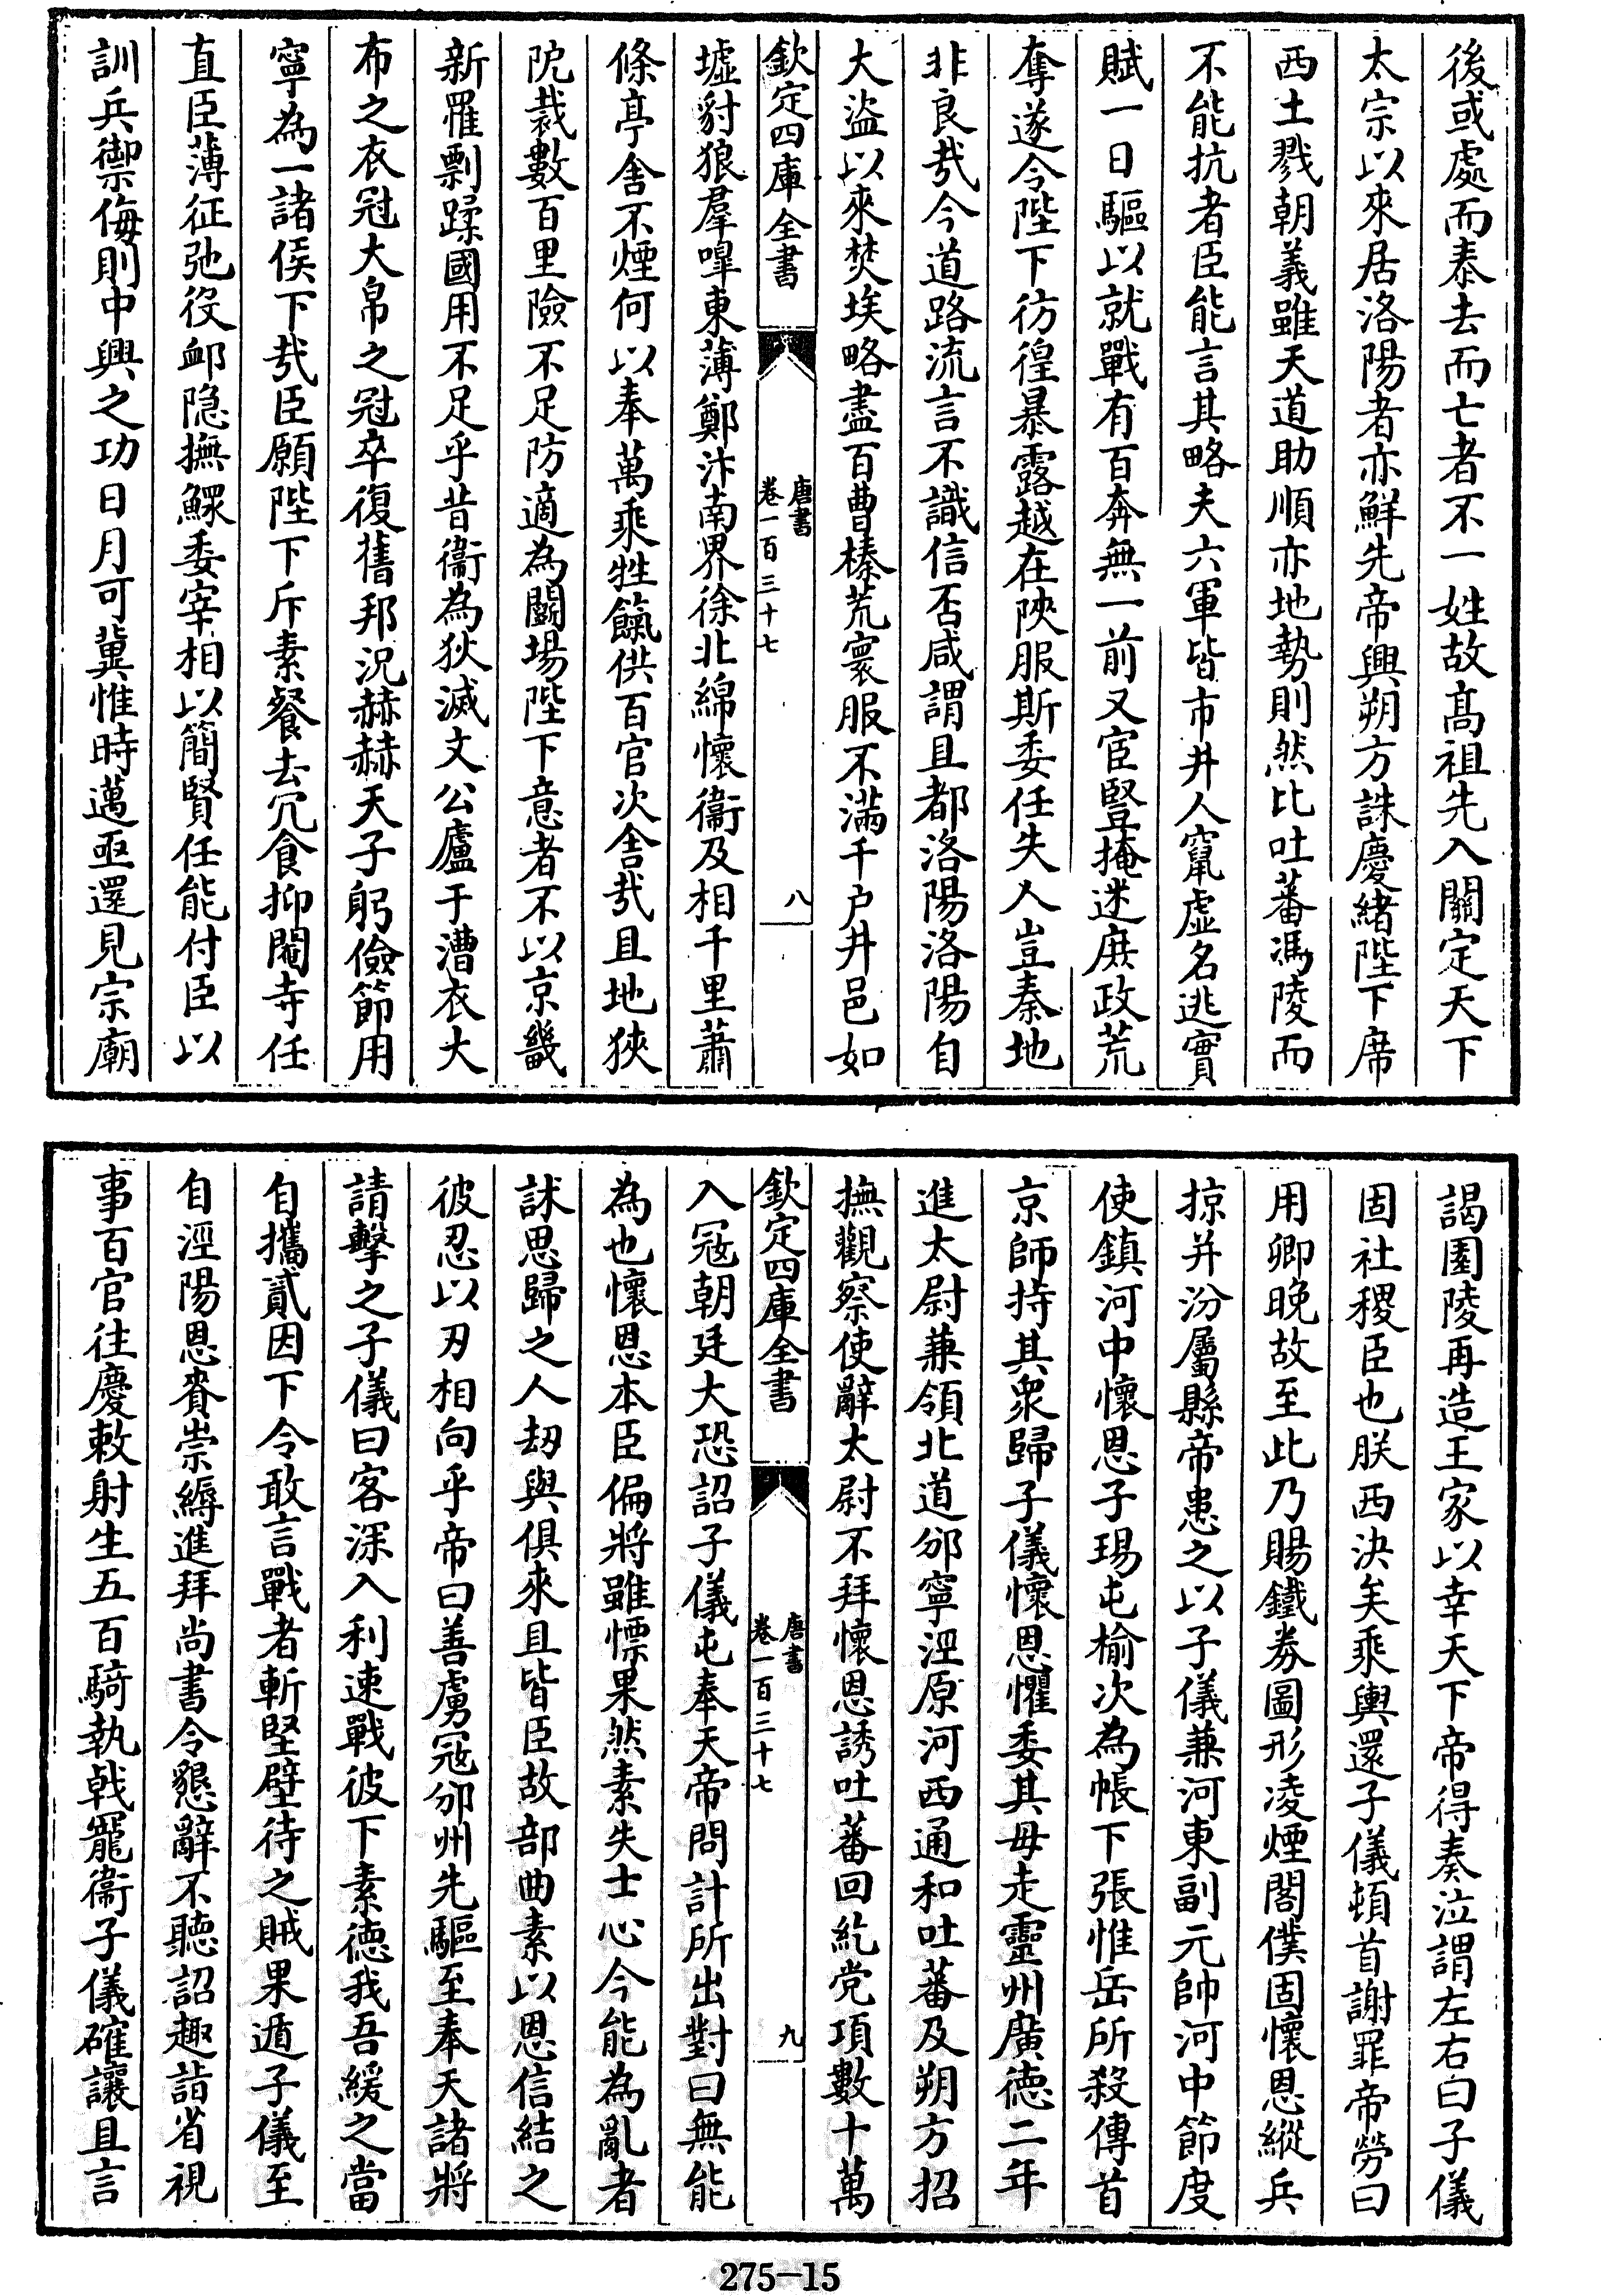 後或處而泰去而亡者不一姓故高祖先入關定天下
太宗以來居洛陽者亦鮮先帝興朔方誅慶緒陛下席
西土戮朝義雖天道助順亦地勢則然比吐蕃馮陵而
不能抗者臣能言其略夫六軍皆市井人竄虛名逃實
賦一日驅以就戰有百奔無一前又宦豎掩迷庶政荒
奪遂令陛下彷徨暴露越在陜服斯委任失人豈秦地
非良哉今道路流言不識信否咸謂且都洛陽洛陽自
大盜以來焚埃略盡百曹榛荒寰服不滿千户井邑如
欽定四庫全書
唐書
卷一百三十七
八
墟豺狼羣嘷東薄鄭汴南界徐北綿懷衞及相千里蕭
條亭舍不煙何以奉萬乘牲餼供百官次舍哉且地狹
阨裁數百里險不足防適為鬭場陛下意者不以京畿
新罹剽蹂國用不足乎昔衞為狄滅文公廬于漕衣大
布之衣冠大帛之冠卒復舊邦況赫赫天子躬儉節用
寧為一諸侯下哉臣願陛下斥素餐去冗食抑閹寺任
直臣薄征弛役卹隐撫鰥委宰相以簡賢任能付臣以
訓兵禦侮則中興之功日月可冀惟時邁亟還見宗廟
謁園陵再造王家以幸天下帝得奏泣謂左右曰子儀
固社稷臣也朕西決矣乘輿還子儀頓首謝罪帝勞曰
用卿晚故至此乃賜鐵券圖形凌煙閣僕固懷恩縱兵
掠并汾屬縣帝患之以子儀兼河東副元帥河中節度
使鎮河中懷恩子瑒屯榆次為帳下張惟岳所殺傳首
京師持其衆歸子儀懷恩懼委其母走靈州廣徳二年
進太尉兼領北道邠寧涇原河西通和吐蕃及朔方招
撫觀察使辭太尉不拜懷恩誘吐蕃回紇党項數十萬
欽定四庫全書
唐書
卷一百三十七
九
入冦朝廷大恐詔子儀屯奉天帝問計所出對曰無能
為也懷恩本臣偏將雖慓果然素失士心今能為亂者
訹思歸之人劫與俱來且皆臣故部曲素以恩信結之
彼忍以刃相向乎帝曰善虜冦邠州先驅至奉天諸將
請擊之子儀曰客深入利速戰彼下素徳我吾緩之當
自攜貳因下令敢言戰者斬堅壁待之賊果遁子儀至
自涇陽恩賚崇縟進拜尚書令懇辭不聽詔趣詣省視
事百官往慶敕射生五百騎執戟寵衞子儀確讓且言
275-15